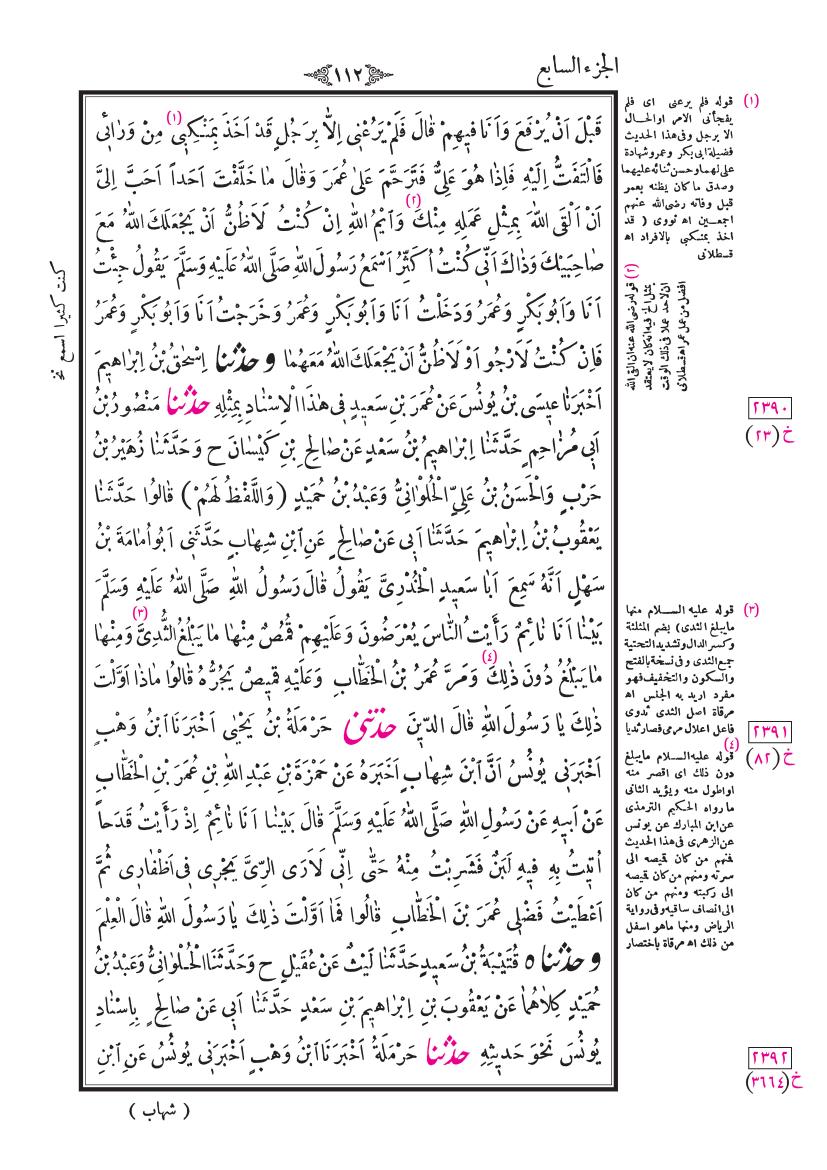 الجزء السابع
﴿١١٢﴾
قَبْلَ اَنْ يُرْفَعَ وَاَنَا فيهِمْ قالَ فَلَمْ يَرُعْنى اِلاّ بِرَجُلٍ قَدْ اَخَذَ بِمَنْكِبى (١) مِنْ وَرائى
فَالْتَفَتُّ اِلَيْهِ فَاِذا هُوَ عَلِىٌّ فَتَرَحَّمَ عَلىٰ عُمَرَ وَقالَ ما خَلَّفْتَ اَحَداً اَحَبَّ اِلَىَّ
اَنْ اَلْقَى اللهَ بِمِثْلِ عَمَلِهِ مِنْكَ (٢) وَاَيْمُ اللهِ اِنْ كُنْتُ لَاَظُنُّ اَنْ يَجْعَلَكَ اللهُ مَعَ
صاحِبَيْكَ وَذاكَ اَنّى كُنْتُ اُكَثِّرُ اَسْمَعُ رَسُولَ اللهِ صَلَّى اللهُ عَلَيْهِ وَسَلَّمَ يَقُولُ جِئْتُ
اَنَا وَاَبُوبَكْرٍ وَعُمَرُ وَدَخَلْتُ اَنَا وَاَبُوبَكْرٍ وَعُمَرُ وَخَرَجْتُ اَنَا وَاَبُوبَكْرٍ وَعُمَرُ
فَاِنْ كُنْتُ لَاَرْجُو اَوْ لَاَظُنُّ اَنْ يَجْعَلَكَ اللهُ مَعَهُما وحَدَّثَنا اِسْحٰقُ بْنُ اِبْراهيمَ
اَخْبَرَنا عيسَى بْنُ يُونُسَ عَنْ عُمَرَ بْنِ سَعيدٍ فى هٰذَا الْاِسْنادِ بِمِثْلِهِ حَدَّثَنا مَنْصُورُ بْنُ
اَبى مُزاحِمٍ حَدَّثَنا اِبْراهيمُ بْنُ سَعْدٍ عَنْ صالِحِ بْنِ كَيْسانَ ح وَحَدَّثَنا زُهَيْرُ بْنُ
حَرْبٍ وَالْحَسَنُ بْنُ عَلِىٍّ الْحُلْوانِىُّ وَعَبْدُ بْنُ حُمَيْدٍ (وَاللَّفْظُ لَهُمْ) قالُوا حَدَّثَنا
يَعْقُوبُ بْنُ اِبْراهيمَ حَدَّثَنا اَبى عَنْ صالِحٍ عَنِ ابْنِ شِهابٍ حَدَّثَنى اَبُو اُمامَةَ بْنُ
سَهْلٍ اَنَّهُ سَمِعَ اَبا سَعيدٍ الْخُدْرِىَّ يَقُولُ قالَ رَسُولُ اللهِ صَلَّى اللهُ عَلَيْهِ وَسَلَّمَ
بَيْنا اَنَا نائِمٌ رَأَيْتُ النّاسَ يُعْرَضُونَ وَعَلَيْهِمْ قُمُصٌ مِنْها ما يَبْلُغُ الثُّدِىَّ (٣) وَمِنْها
ما يَبْلُغُ دُونَ ذٰلِكَ (٤) وَمَرَّ عُمَرُ بْنُ الْخَطّابِ وَعَلَيْهِ قَميصٌ يَجُرُّهُ قالُوا ماذا اَوَّلْتَ
ذٰلِكَ يا رَسُولَ اللهِ قالَ الدّينَ حَدَّثَنى حَرْمَلَةُ بْنُ يَحْيٰى اَخْبَرَنَا ابْنُ وَهْبٍ
اَخْبَرَنى يُونُسُ اَنَّ ابْنَ شِهابٍ اَخْبَرَهُ عَنْ حَمْزَةَ بْنِ عَبْدِ اللهِ بْنِ عُمَرَ بْنِ الْخَطّابِ
عَنْ اَبيهِ عَنْ رَسُولِ اللهِ صَلَّى اللهُ عَلَيْهِ وَسَلَّمَ قالَ بَيْنا اَنَا نائِمٌ اِذْ رَأَيْتُ قَدَحاً
اُتيتُ بِهِ فيهِ لَبَنٌ فَشَرِبْتُ مِنْهُ حَتّٰى اِنّى لَاَرَى الرِّىَّ يَجْرى فى اَظْفارى ثُمَّ
اَعْطَيْتُ فَضْلى عُمَرَ بْنَ الْخَطّابِ قالُوا فَما اَوَّلْتَ ذٰلِكَ يا رَسُولَ اللهِ قالَ الْعِلْمَ
وحَدَّثَناه قُتَيْبَةُ بْنُ سَعيدٍ حَدَّثَنا لَيْثٌ عَنْ عُقَيْلٍ ح وَحَدَّثَنَا الْحُلْوانِىُّ وَعَبْدُ بْنُ
حُمَيْدٍ كِلاهُما عَنْ يَعْقُوبَ بْنِ اِبْراهيمَ بْنِ سَعْدٍ حَدَّثَنا اَبى عَنْ صالِحٍ بِاِسْنادِ
يُونُسَ نَحْوَ حَديثِهِ حَدَّثَنا حَرْمَلَةُ اَخْبَرَنَا ابْنُ وَهْبٍ اَخْبَرَنى يُونُسُ عَنِ ابْنِ
( شهاب )
كنت كثيرا اسمع نخ
(١) قوله فلم يرعنى اى فلم
يفجأنى الامر اوالحال
الا برجل وفى هذا الحديث
فضيلة ابى بكر وعمر وشهادة
على لهما وحسن ثنائه عليهما
وصدق ما كان يظنه بعمر
قبل وفاته رضى الله عنهم
اجمعين اه نووى ( قد
اخذ بمنكبى بالافراد اه
قسطلانى
(٢) قوله رضى الله عنه ان القى الله
بمثل الخ فيه انه كان لا يعتقد
ان لاحد عملا فى ذلك الوقت
افضل من عمل عمر اه قسطلانى
٢٣٩٠
خ (٢٣)
(٣) قوله عليه السلام منها
مايبلغ الثدى) بضم المثلثة
وكسر الدال وتشديد التحتية
جمع الثدى وفى نسخة بالفتح
والسكون والتخفيف فهو
مفرد اريد به الجنس اه
مرقاة اصل الثدى ثدوى
فاعل اعلال مرمى فصار ثديا
٢٣٩١
خ (٨٢)
(٤) قوله عليه السلام مايبلغ
دون ذلك اى اقصر منه
اواطول منه ويؤيد الثانى
ما رواه الحكيم الترمذى
عن ابن المبارك عن يونس
عن الزهرى فى هذا الحديث
فمنهم من كان قميصه الى
سرته ومنهم من كان قميصه
الى ركبته ومنهم من كان
الى انصاف ساقيه وفى رواية
الرياض ومنها ماهو اسفل
من ذلك اه مرقاة باختصار
٢٣٩٢
خ (٣٦٦٤)